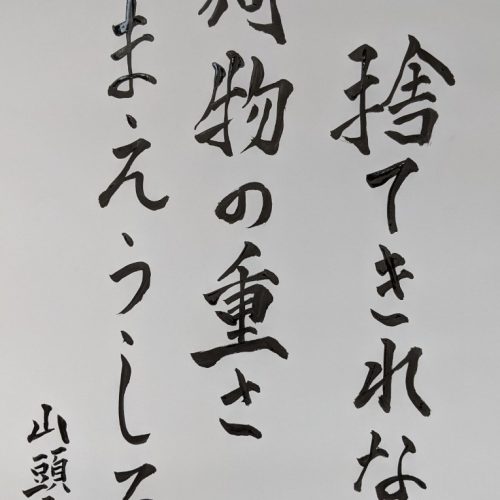 捨てきれな
荷物の重さ
まえうしろ
山頭